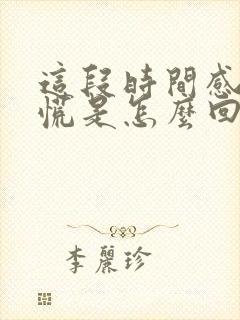 這段時間感
慌是怎麼回
李麗珍